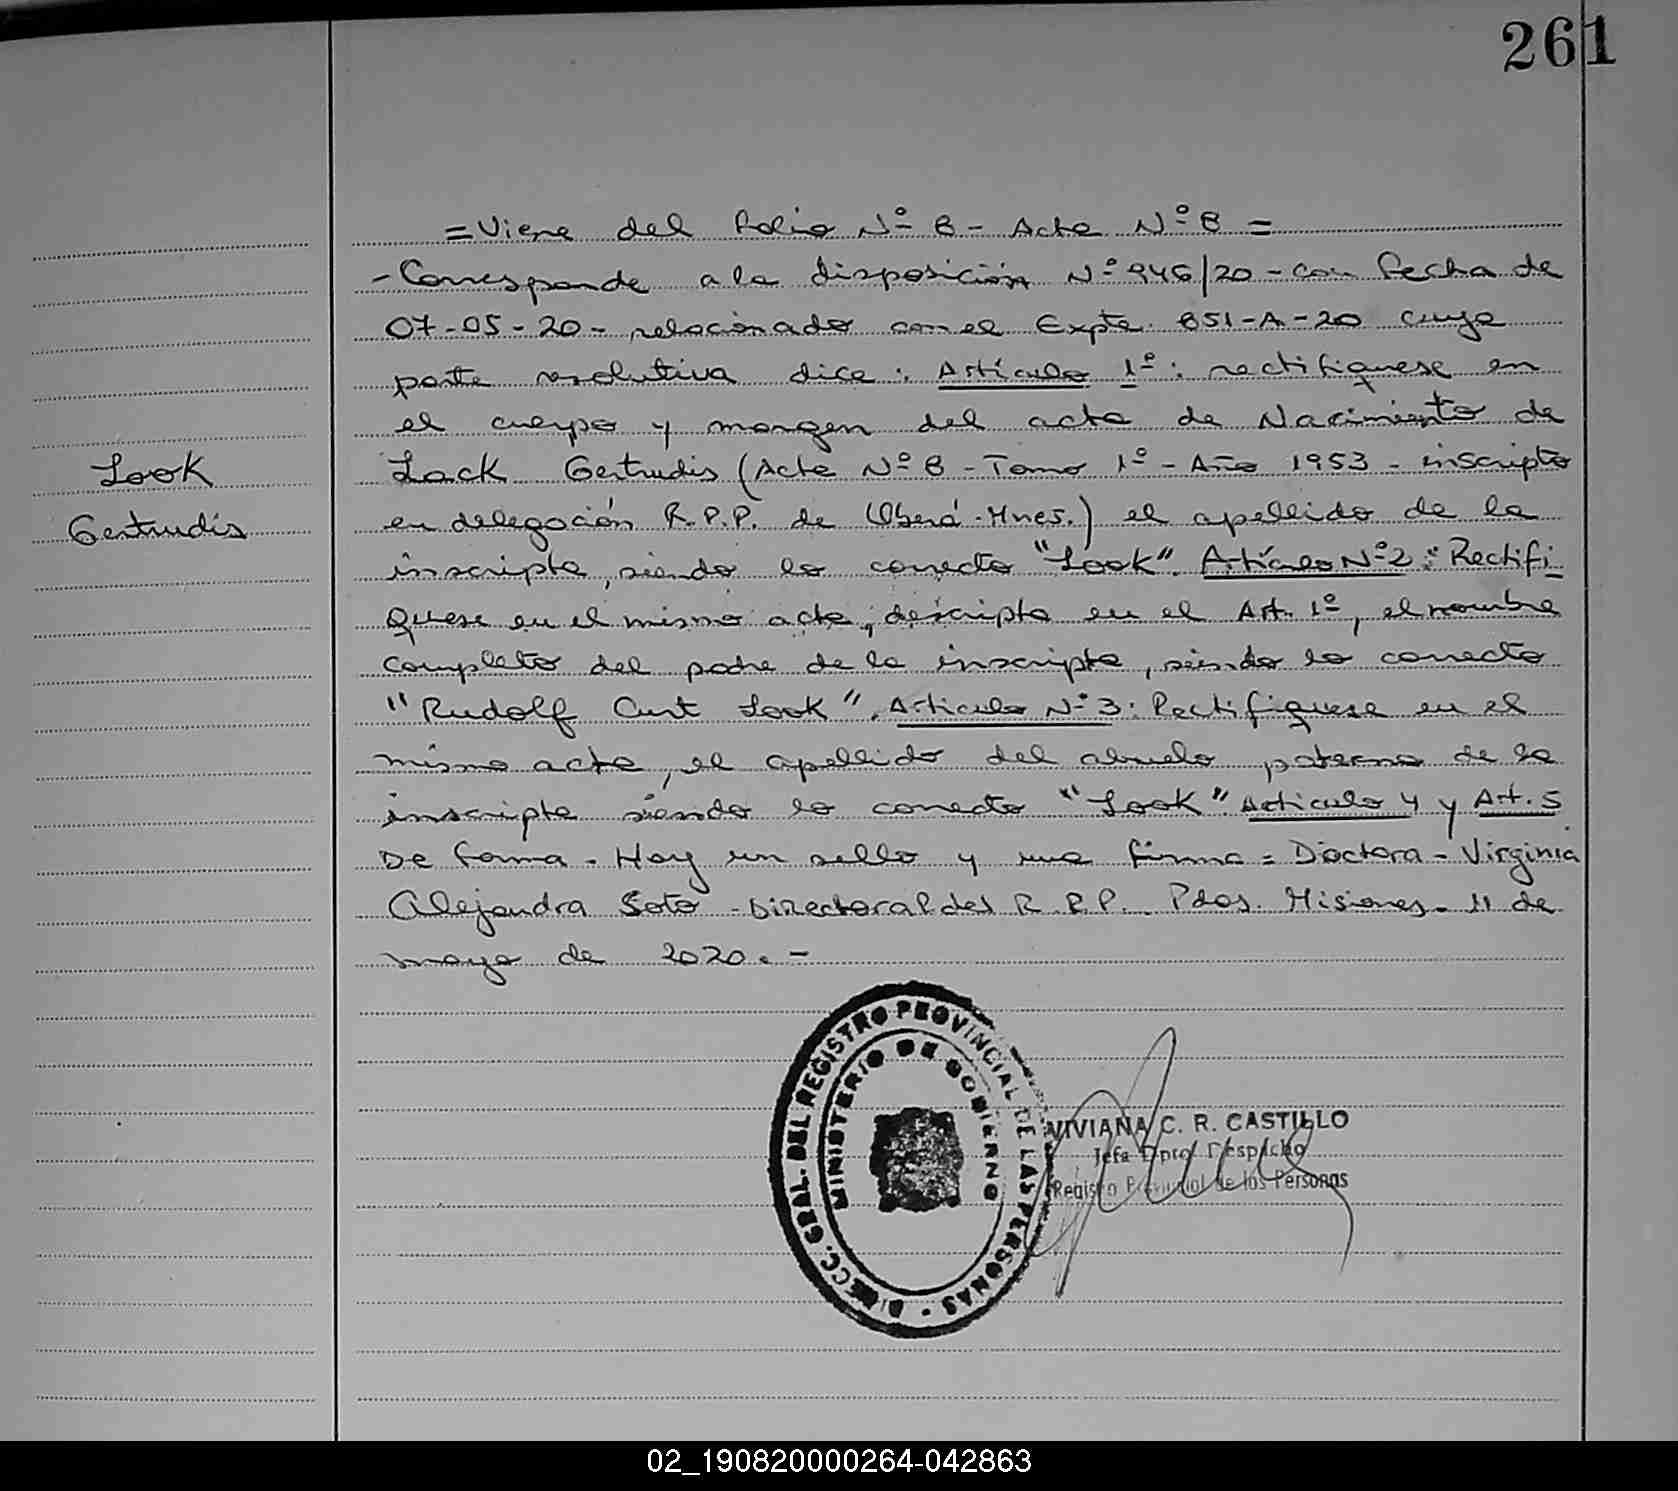 261
=Viene del folio Nº 8 - Acta Nº 8 =
- Corresponde a la disposición Nº 946/20 - con fecha de
07-05-20- relacionado con el Expte. 851-A-20 cuya
parte resolutiva dice: Artículo 1º: rectifiquese en
el cuerpo y margen del acta de Nacimiento de
Look
Lack Gertrudis (Acta Nº 8 - Tomo 1º - Año 1953 - inscripto
Gertrudis
en delegación R.P.P. de Oberá - Mnes.) el apellido de la
inscripta, siendo lo correcto "Look". Artículo Nº 2: Rectifi_
quese en el mismo acta, descripta en el Art. 1º, el nombre
completo del padre de la inscripta, siendo lo correcto
"Rudolf Curt Look". Articulo Nº 3: Rectifiquese en el
mismo acta, el apellido del abuelo paterno de la
inscripta siendo lo correcto "Look". Articulo 4 y Art. 5
De forma. Hay un sello y una firma = Doctora - Virginia
Alejandra Soto - Directora G. del R.P.P. Pdas. Misiones. 11 de
mayo de 2020.-
DIRECC. GRAL. DEL REGISTRO PROVINCIAL DE LAS PERSONAS -
MINISTERIO DE GOBIERNO
VIVIANA C. R. CASTILLO
Jefa Dpto. Despacho
Registro Provincial de las Personas
02_190820000264-042863